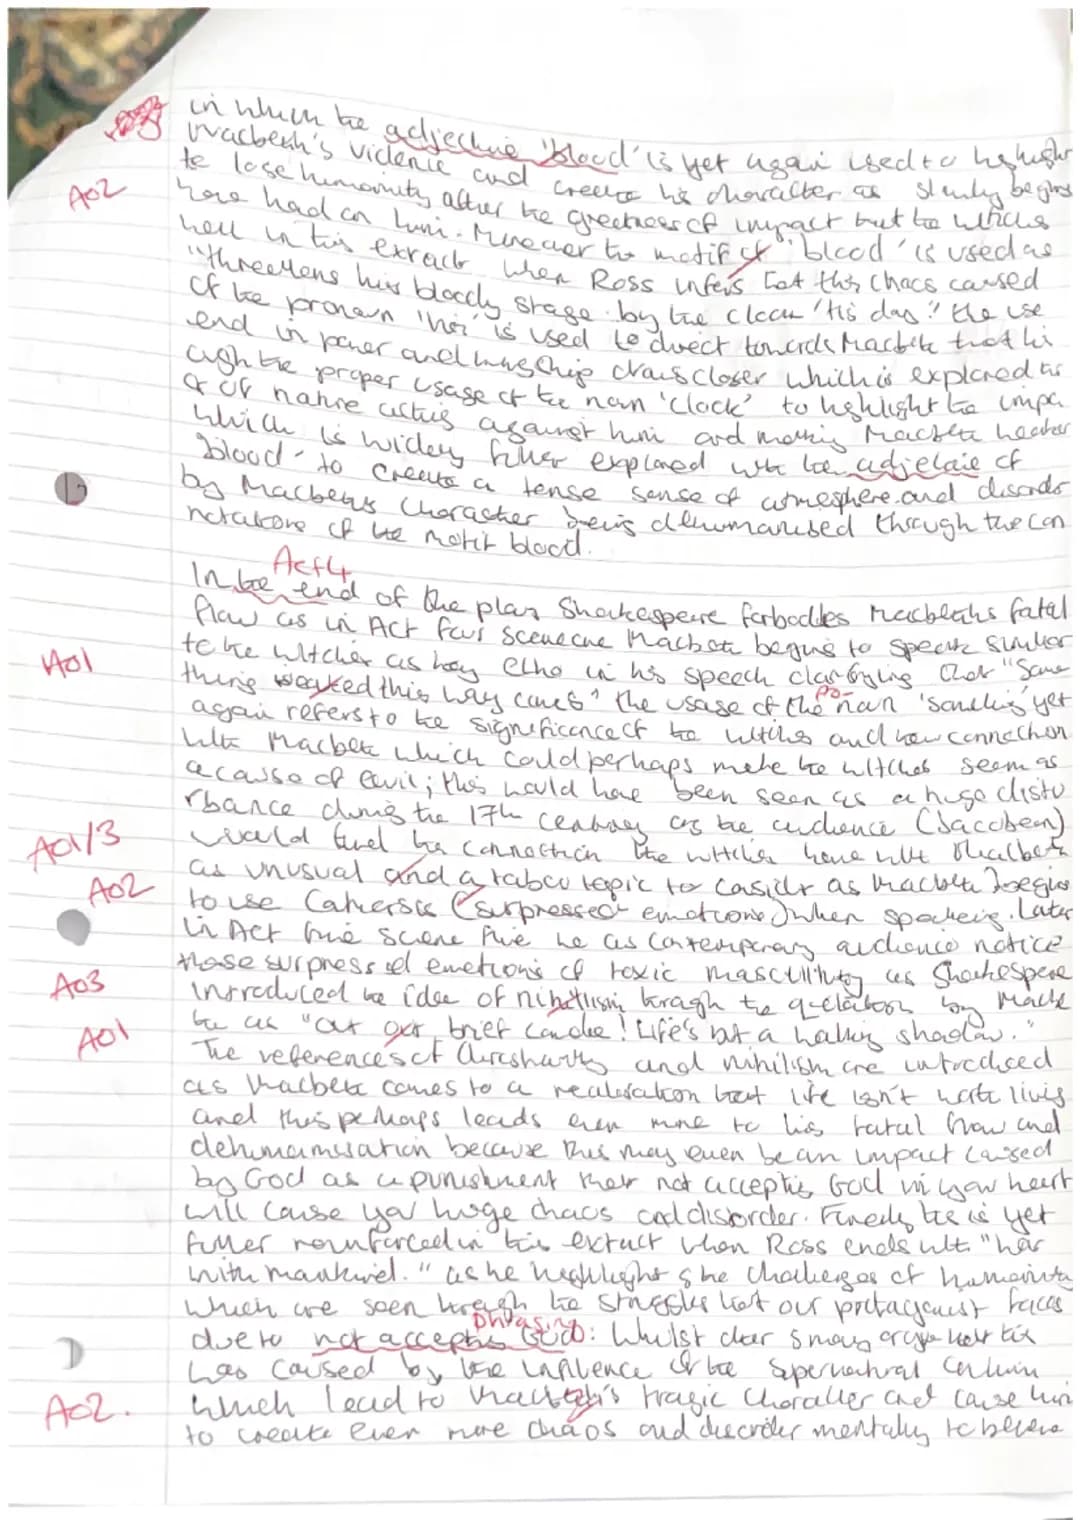 in which the adjective 'blood' is yet again used to highlight
AO2
Macbeth's violence and create his character as slowly begins
to lose humanity after the greatness of impact that the witches
have had on him. Moreover the motif of 'blood' is used as
well in this extract when Ross infers that this chaos caused
"threatens his bloody stage by the clock 'tis day". the use
of the pronoun 'his' is used to direct towards Macbeth that his
end in power and kingship draws closer which is explored thr
ough the proper usage of the noun 'clock' to highlight the impa
ct of nature acting against him and making Macbeth
which is widely futher explored with the adjetaie of
blood - to create a tense sense of atmosphere and disorder
by Macbeths character being dehumanised through the con
notations of the motif blood.
Act 4
In the end of the play Shakespeare forbodes Macbeths fatal
flaw as in Act four scene one Macbeth begins to speak similar
AO1
to the witches as they echo in his speech clarifying that "Some
thing weaked this way comes" the usage of the noun 'something' yet
pro-
again refers to the significance of the witches and how connection
with Macbeth which could perhaps make the witches seem as
a cause of evil; this would have been seen as a huge distu
rbance during the 17th century as the audience (Jacobean)
AO1/3
would find the connection the witches have with Macbeth
AO2
as unusual and a taboo topic to considr as Macbeth begins
to use Catharsis (surpressed emotions) when speaking. Later
in Act five scene five we as contemporary audience notice
AO3
those surpressed emotions of toxic masculinity as Shakespeare
introduced the idea of nihilism through the quotation by Macbe
AO1
"Out out brief candle! Life's but a walking shadow."
The references of and nihilism are introduced
as Macbeth comes to a realisation that life isn't worth living
and this perhaps leads even more to his fatal flaw and
dehumanisation because this may even be an impact caused
by God as a punishment that not accepting God in your heart
will cause you huge chaos and disorder. Finally this is yet
futher reinforced in this extract when Ross ends with "
with mankind." as he highlights the challenges of humanity
which are seen through the struggles that our protagonist faces
Phrasing
due to not accepting God: Whilst other's may argue that this
was caused by the influence of the supernatural
AO2.
which lead to Macbeth's tragic character and cause him
to create even more chaos and disorder mentally to